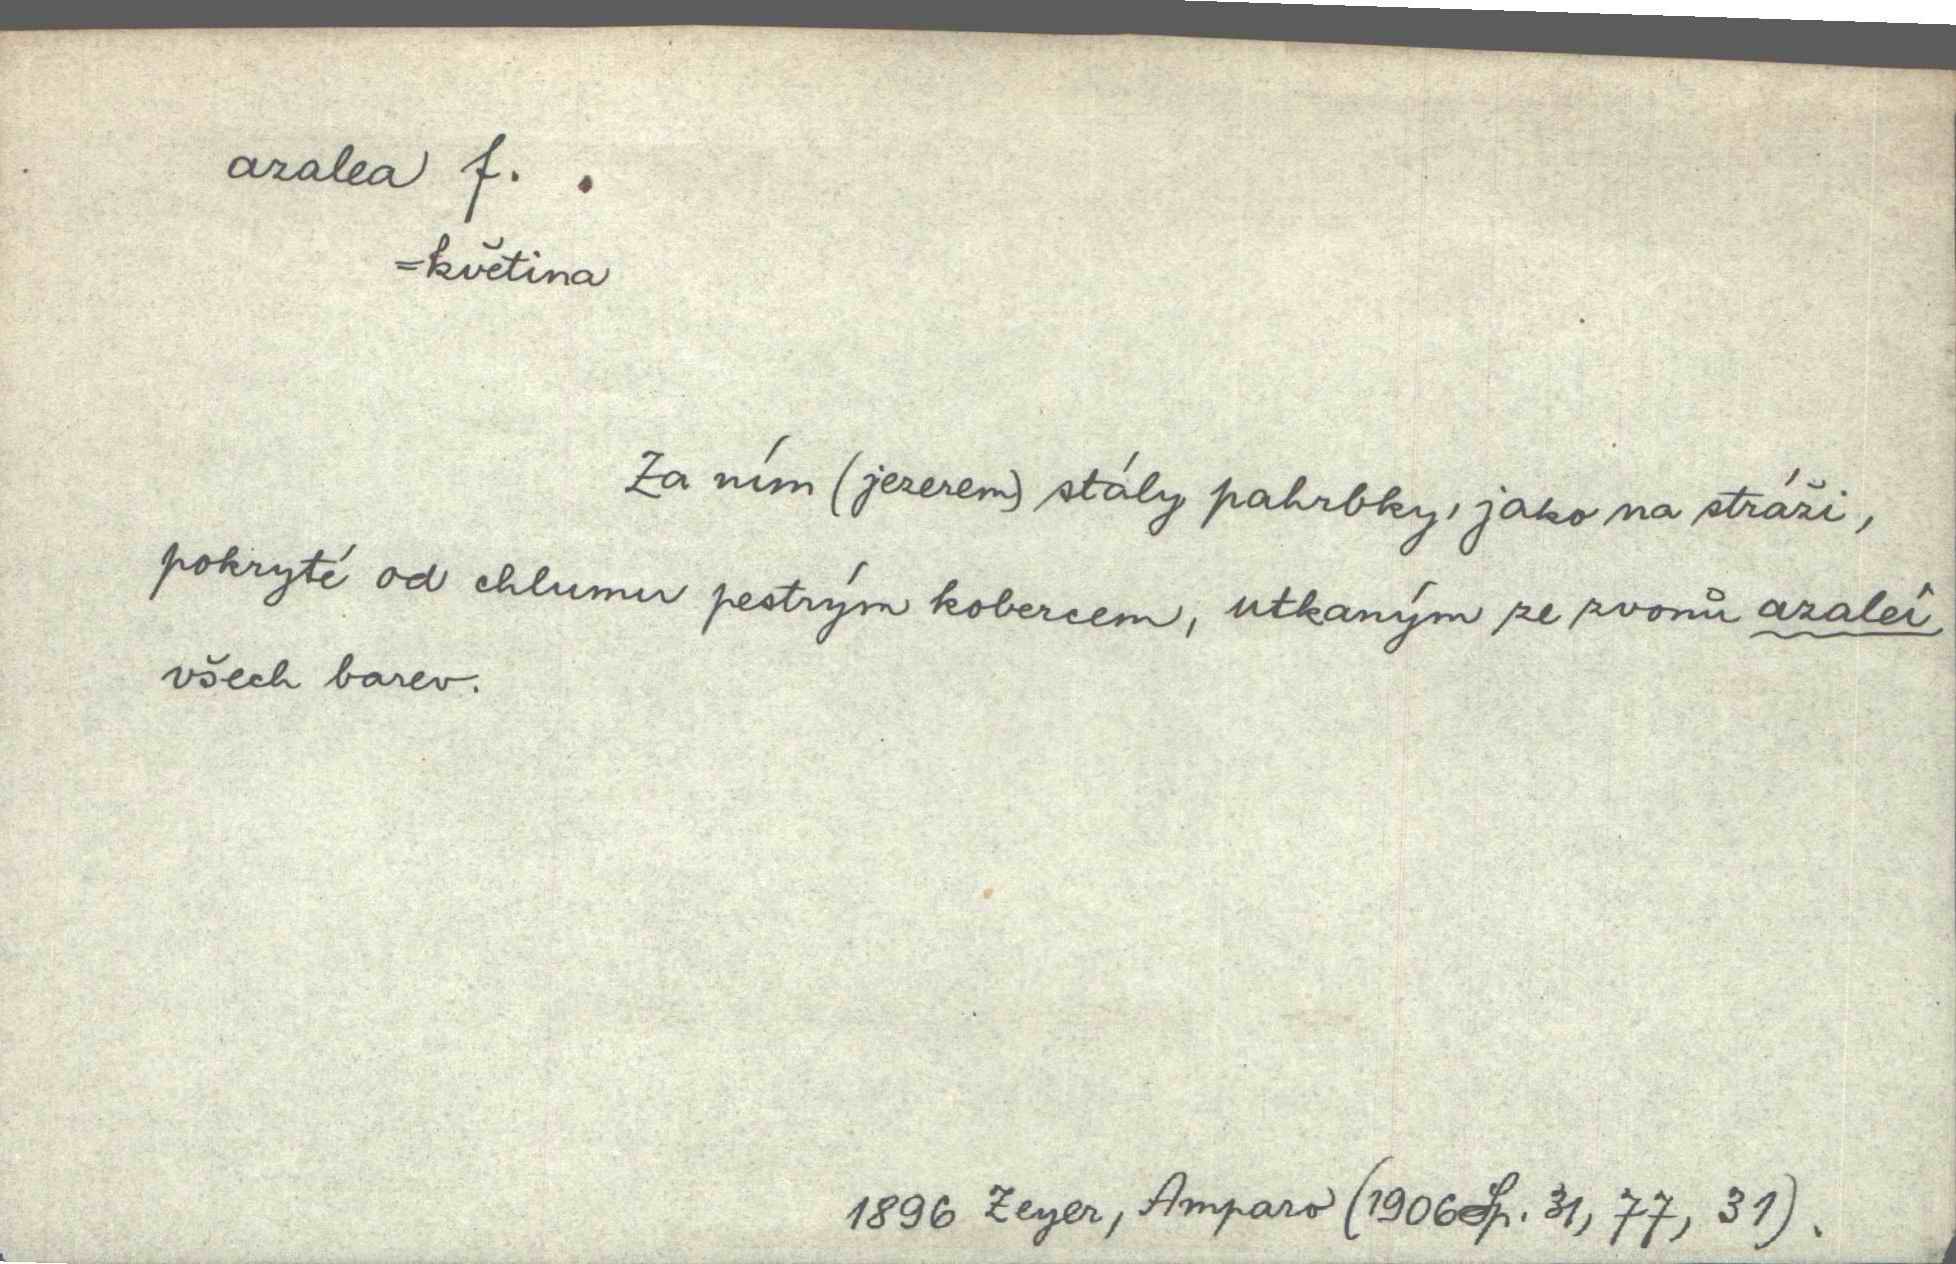 azalea f.
=květina
Za ním (jezerem) stály pahrbky, jako na stráži,
pokryté od chlumu pestrým kobercem, utkaným ze zvonů azaleí
všech barev.
1896 Zeyer, Amparo (1906 Sp. 31, 77, 31).